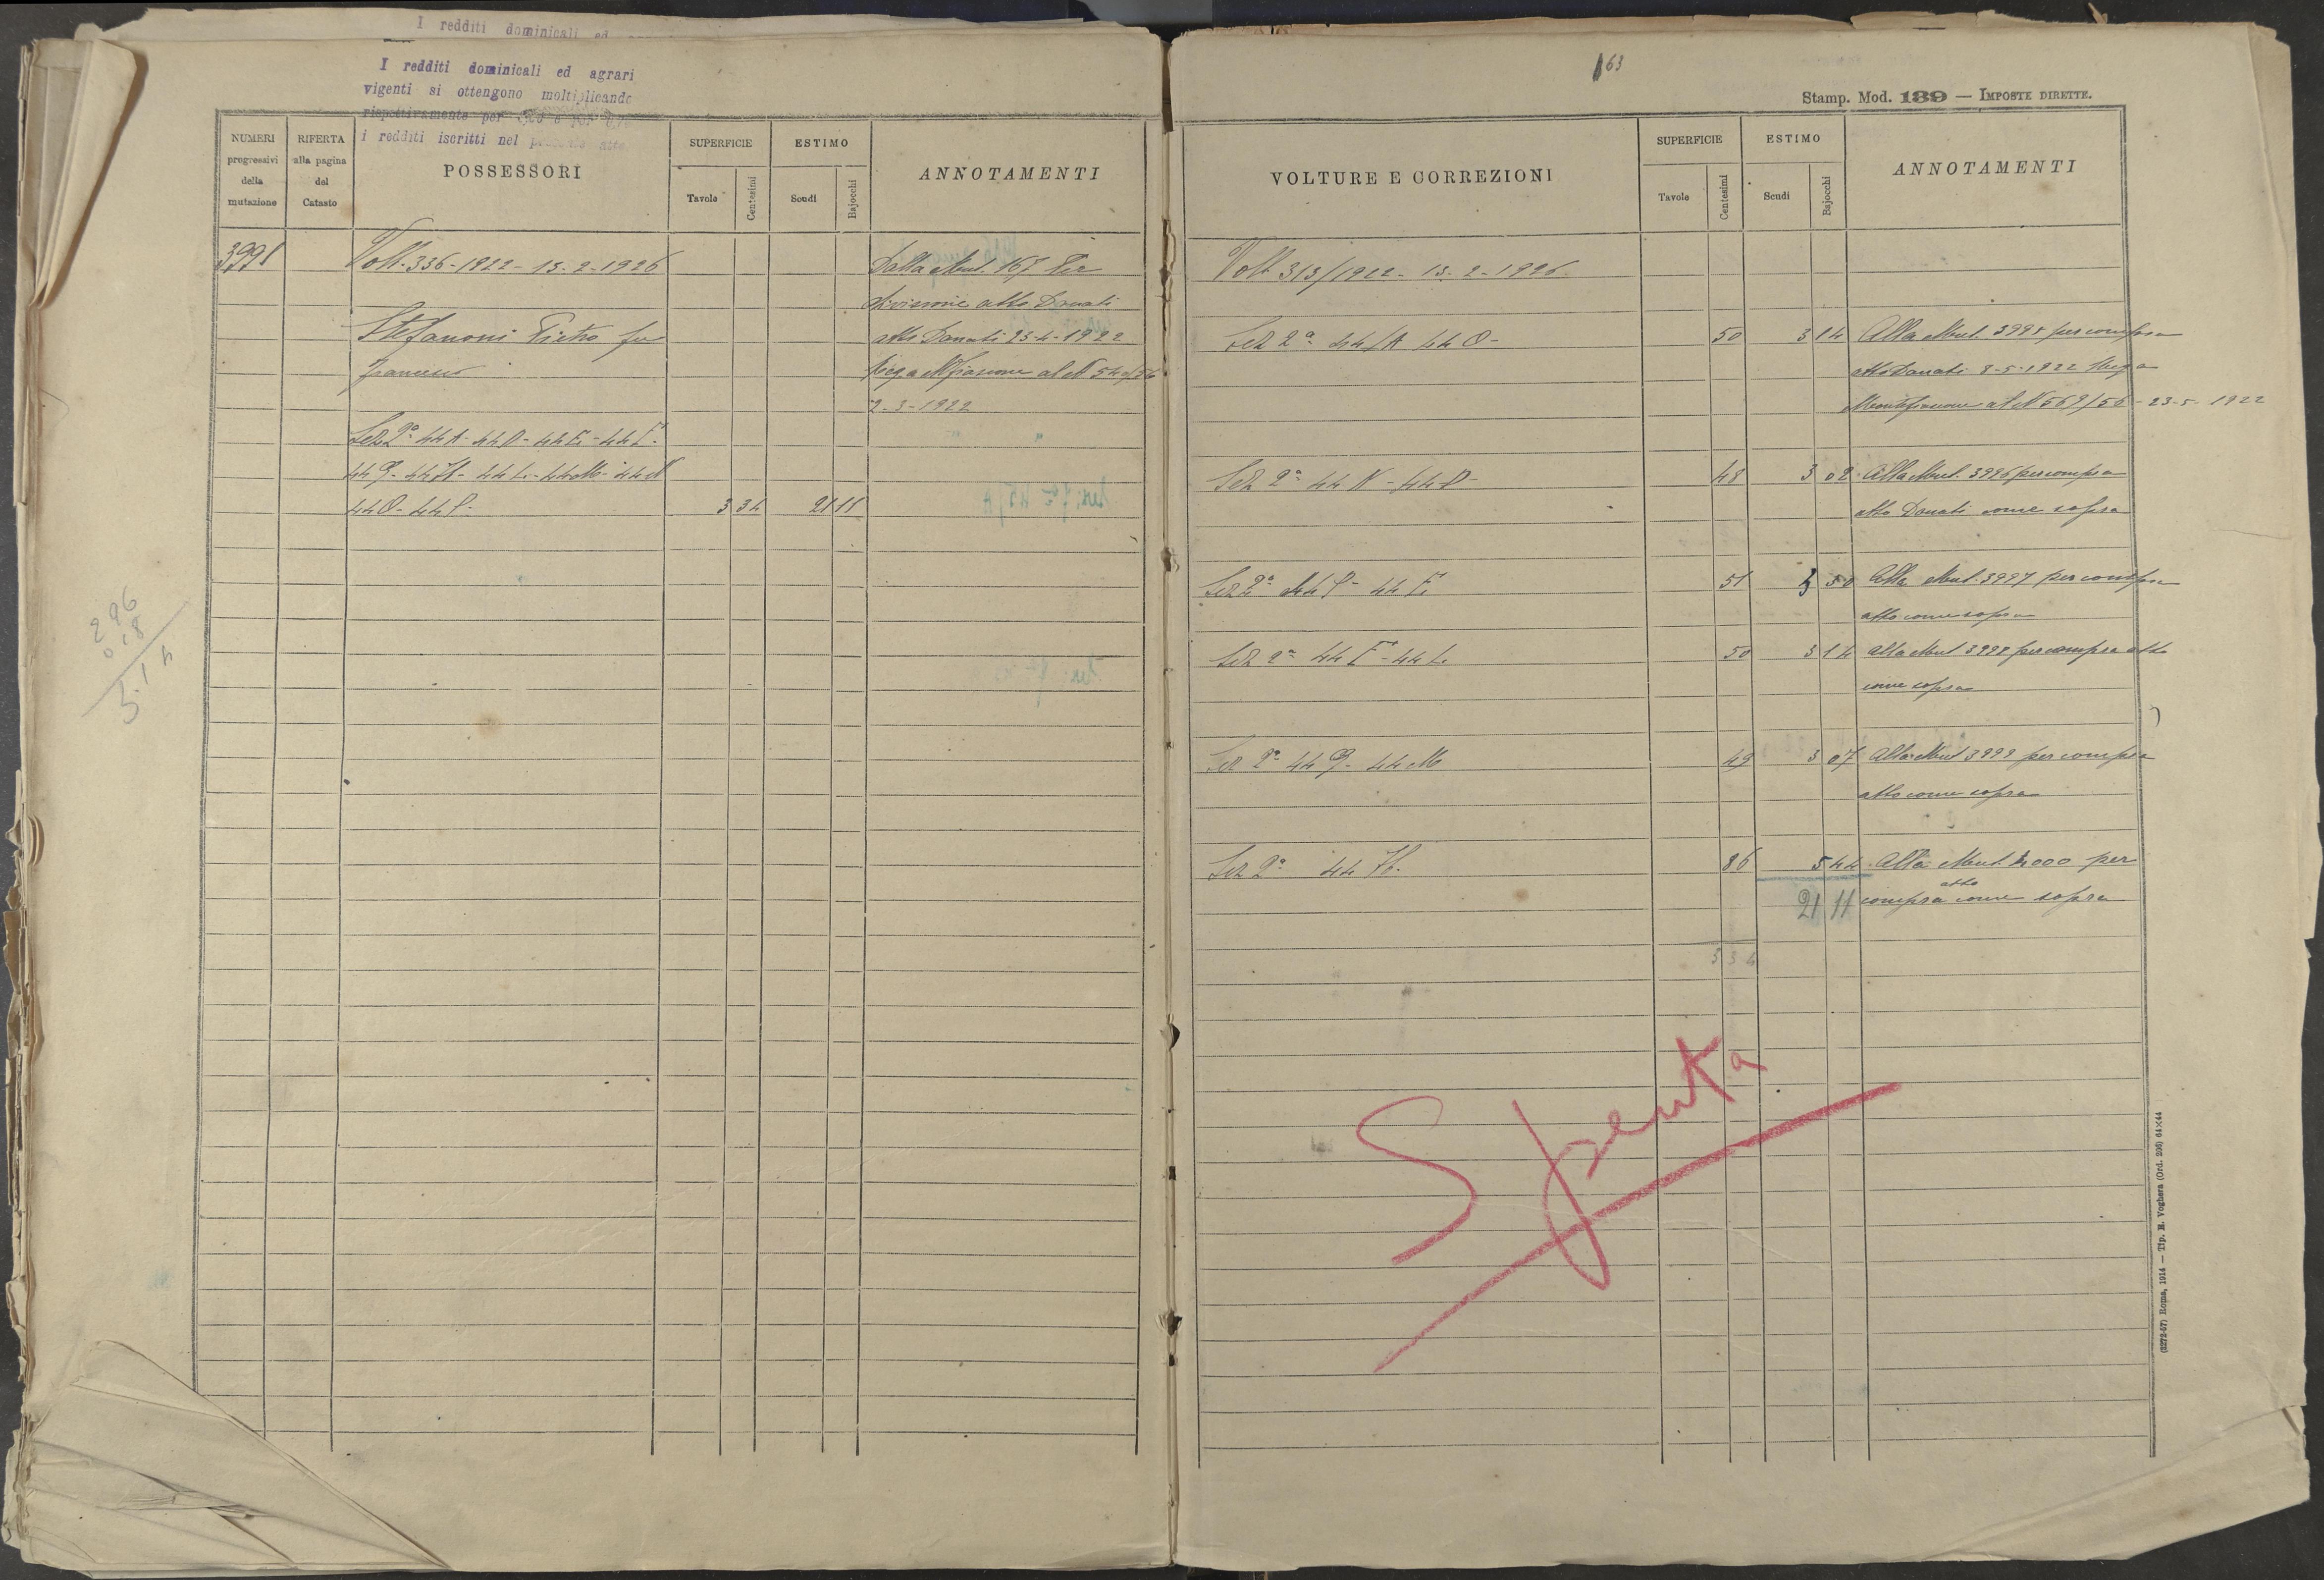 I redditi dominicali ed
I redditi dominicali ed agrari
vigenti si ottengono moltiplicando
rispettivamente per
i redditi iscritti nel
NUMERI progressivi della mutazione
RIFERTA alla pagina del Catasto
POSSESSORI
SUPERFICIE
Tavole
Centesimi
ESTIMO
Scudi
Bajocchi
ANNOTAMENTI
3991
Volt. 336-1922- 13-2-1926
Stefanoni Pietro fu
Francesco
Sez 2ª 44A-44D-44E-44F-
44G-44H-44L-44M-44N
44O-44P- 3 34 21 11
Dalla Mut. 167 Per
divisione atto Donati
atto Donati 23-4-1922
2-3-1922
296
018
3.14
163
Stamp. Mod. 139 — IMPOSTE DIRETTE.
VOLTURE E CORREZIONI
SUPERFICIE
Tavole
Centesimi
ESTIMO
Scudi
Bajocchi
ANNOTAMENTI
Volt 313/1922- 13-2-1926
Sez 2ª 44/A 44O- 50 3 14 Alla Mut. 3995 per compra
atto Donati 8-5-1922
Montefiascone al N 569/56-23-5-1922
Sez 2ª 44N-44D- 48 3 02 Alla Mut. 3996 per compra
atto Donati come sopra
Sez 2ª 44P-44E 51 3 50 Alla Mut. 3997 per compra
atto come sopra
Sez 2ª 44F-44L 50 3 14 Alla Mut 3998 per compra atto
come sopra
Sez 2ª 44G-44M 49 3 07 Alla Mut 3999 per compra
atto come sopra
Sez 2ª 44H. 86 5 44 Alla Mut. 4000 per
21 11 compra atto come sopra
3 34
Spenta
(2272-57) Roma, 1914 — Tip. E. Voghera (Ord. 206) 64×44